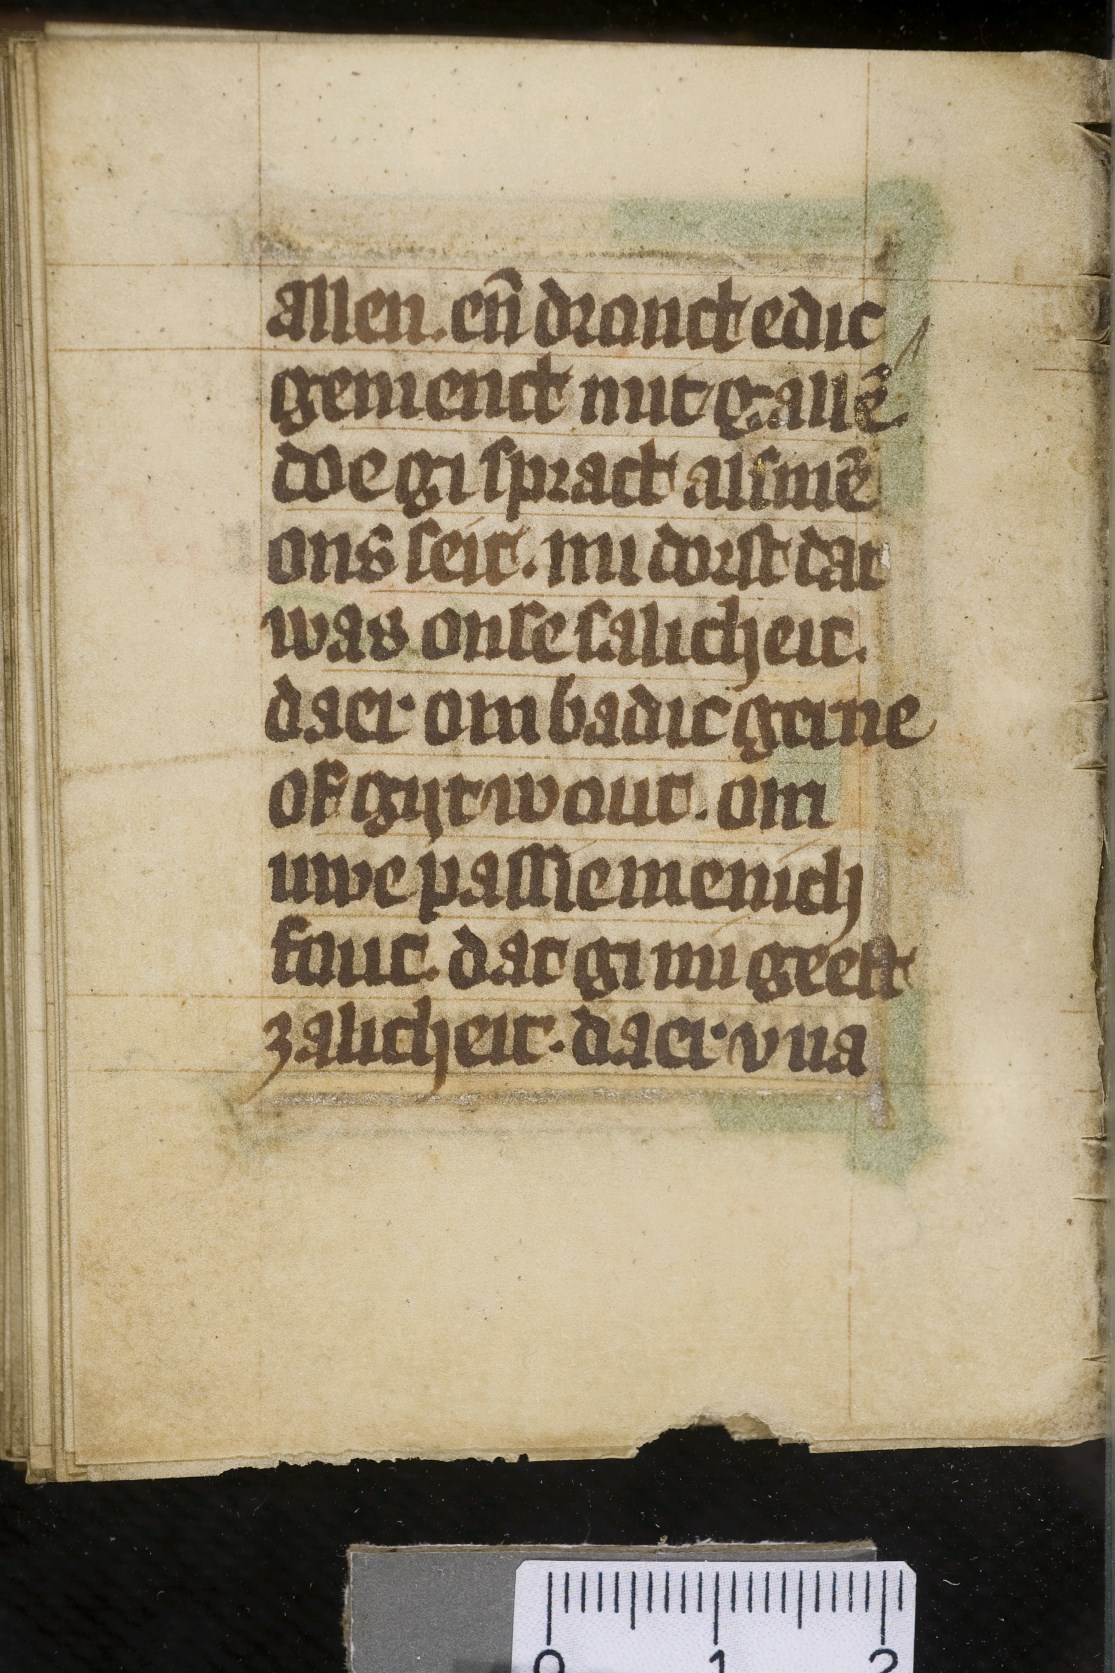 allen. en̄ dranct edic
gemenct mit gallē.
doe gi spract alsmē
ons seit. mi dorst dat
was onse salicheit.
daer om badic gerne
of gijt wout. om
uwe passie menich
fout. dat gi mi geeft
zalicheit. daer v na
0 1 2